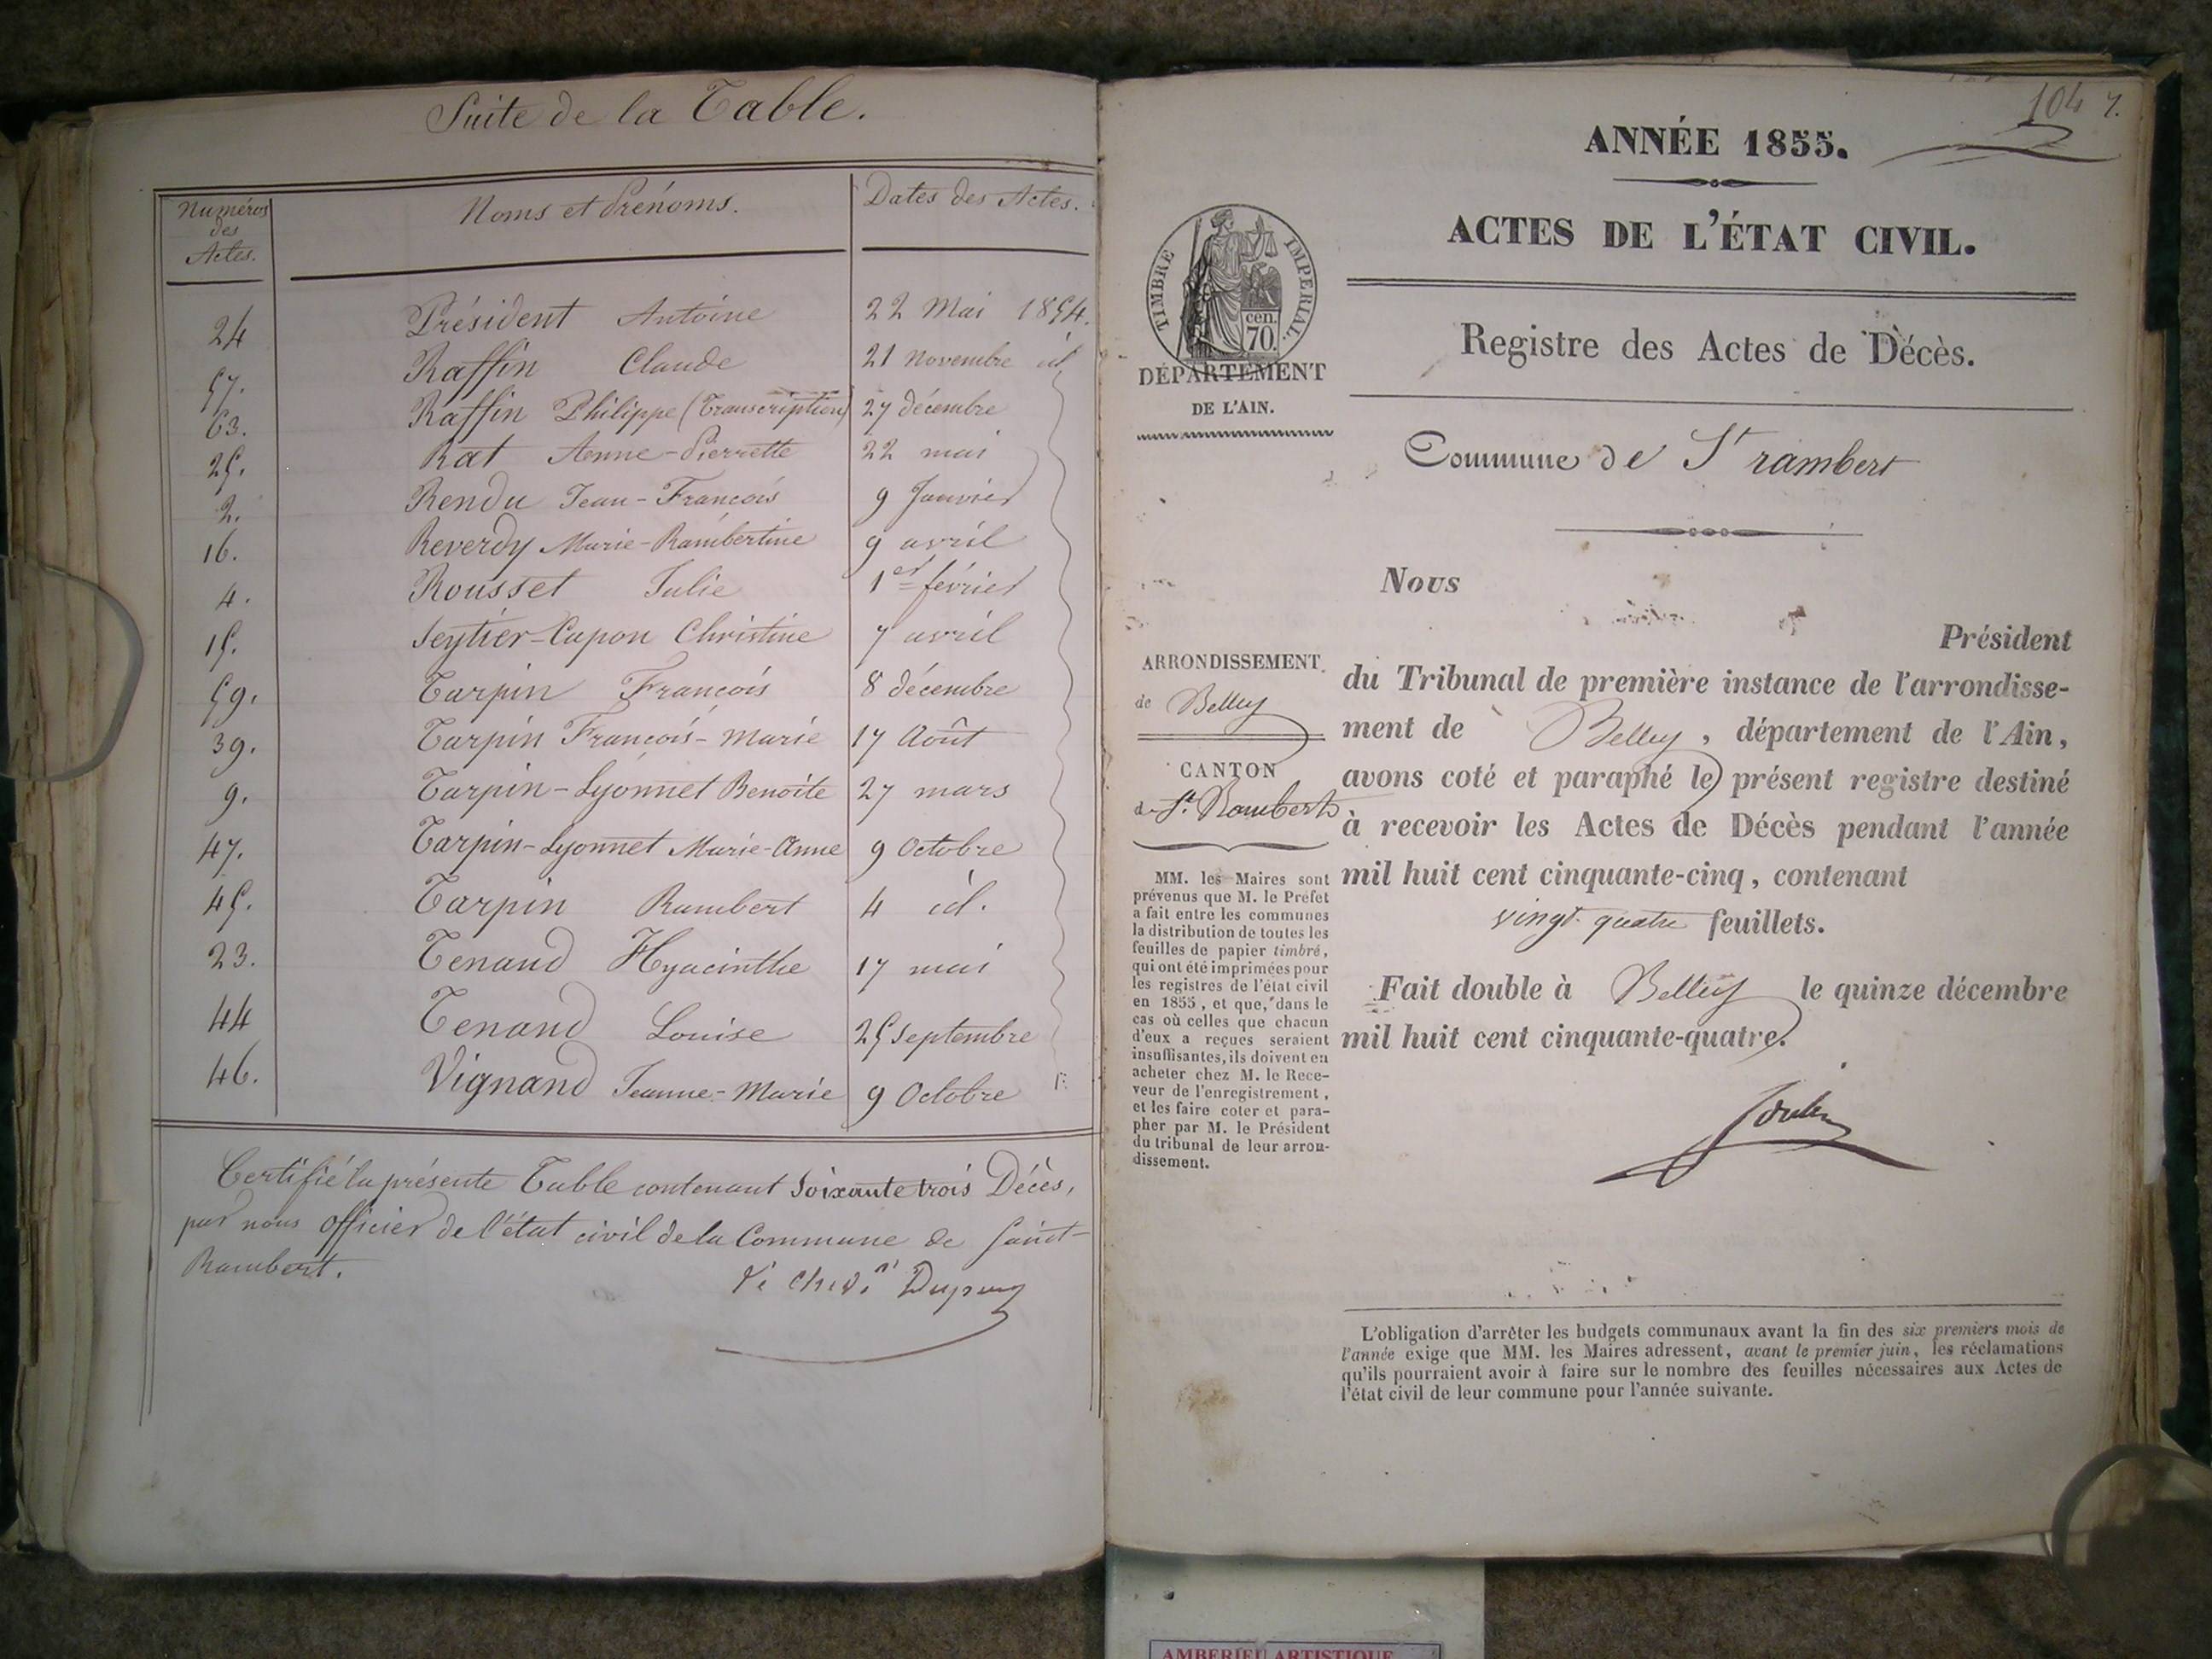 Suite de la Table.
Numéros des Actes. Noms et Prénoms. Dates des Actes.
24 Président Antoine 22 Mai 1854.
57. Raffin Claude 21 Novembre id
63. Raffin Philippe (Transcription) 27 décembre
25. Rat Anne-Pierrette 22 mai
2. Rendu Jean-François 9 Janvier
16. Reverdy Marie-Rambertine 9 avril
4. Rousset Julie 1er février
15. Seytier-Capon Christine 7 avril
59. Tarpin François 8 décembre
39. Tarpin François-Marie 17 Août
9. Tarpin-Lyonnet Benoite 27 mars
47. Tarpin-Lyonnet Marie-Anne 9 Octobre
45. Tarpin Rambert 4 id.
23. Tenand Hyacinthe 17 mai
44 Tenand Louise 25 Septembre
46. Vignand Jeanne-Marie 9 Octobre
Certifié la présente Table contenant soixante trois Décès,
par nous officier de l'état civil de la Commune de Saint-
Rambert.
Dupuy
104
ANNÉE 1855.
ACTES DE L'ÉTAT CIVIL.
TIMBRE IMPERIAL.
cen.
70.
DÉPARTEMENT
DE L'AIN.
Registre des Actes de Décès.
Commune de St rambert
ARRONDISSEMENT
de Belley
CANTON
de St. Rambert
MM. les Maires sont
prévenus que M. le Préfet
a fait entre les communes
la distribution de toutes les
feuilles de papier timbré,
qui ont été imprimées pour
les registres de l'état civil
en 1855, et que, dans le
cas où celles que chacun
d'eux a reçues seraient
insuffisantes, ils doivent en
acheter chez M. le Rece-
veur de l'enregistrement,
et les faire coter et para-
pher par M. le Président
du tribunal de leur arron-
dissement.
Nous
Président
du Tribunal de première instance de l'arrondisse-
ment de Belley, département de l'Ain,
avons coté et paraphé le présent registre destiné
à recevoir les Actes de Décès pendant l'année
mil huit cent cinquante-cinq, contenant
vingt quatre feuillets.
Fait double à Belley le quinze décembre
mil huit cent cinquante-quatre.
L'obligation d'arrêter les budgets communaux avant la fin des six premiers mois de
l'année exige que MM. les Maires adressent, avant le premier juin, les réclamations
qu'ils pourraient avoir à faire sur le nombre des feuilles nécessaires aux Actes de
l'état civil de leur commune pour l'année suivante.
AMBERIEU ARTISTIQUE